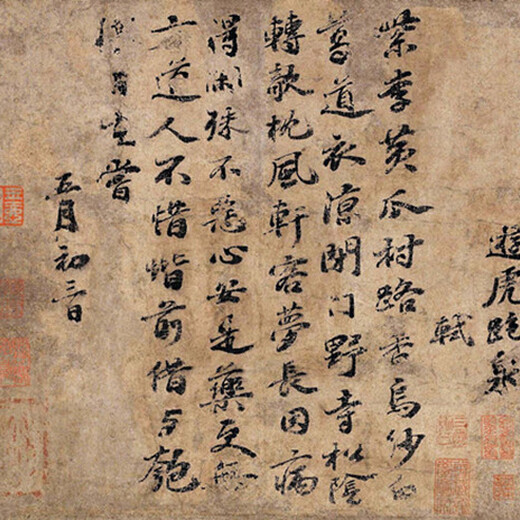 遊虎跑泉
軾
紫李黃瓜村路香烏紗白
葛道衣涼閉門野寺松陰
轉欹枕風軒客夢長因病
得閑殊不惡心安是藥更無
方道人不惜堦前借与匏
嘗
五月初